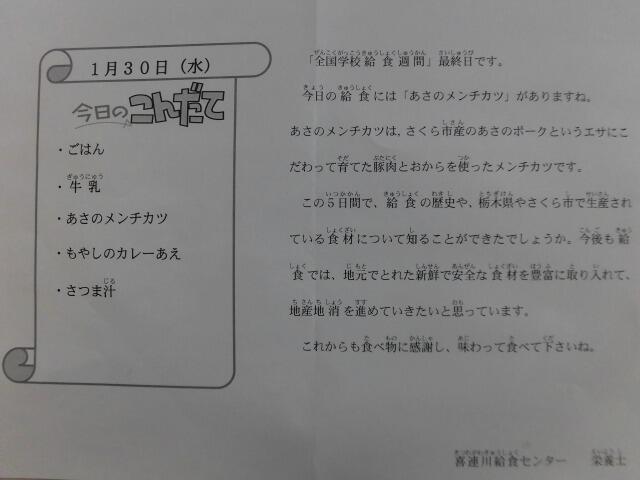 1月30日（水）
今日のこんだて
・ごはん
・牛乳
・あさのメンチカツ
・もやしのカレーあえ
・さつま汁
「全国学校給食週間」最終日です。
今日の給食には「あさのメンチカツ」がありますね。
あさのメンチカツは、さくら市産のあさのポークというエサにこ
だわって育てた豚肉とおからを使ったメンチカツです。
この5日間で、給食の歴史や、栃木県やさくら市で生産され
ている食材について知ることができたでしょうか。今後も給
食では、地元でとれた新鮮で安全な食材を豊富に取り入れて、
地産地消を進めていきたいと思っています。
これからも食べ物に感謝し、味わって食べて下さいね。
喜連川給食センター　栄養士